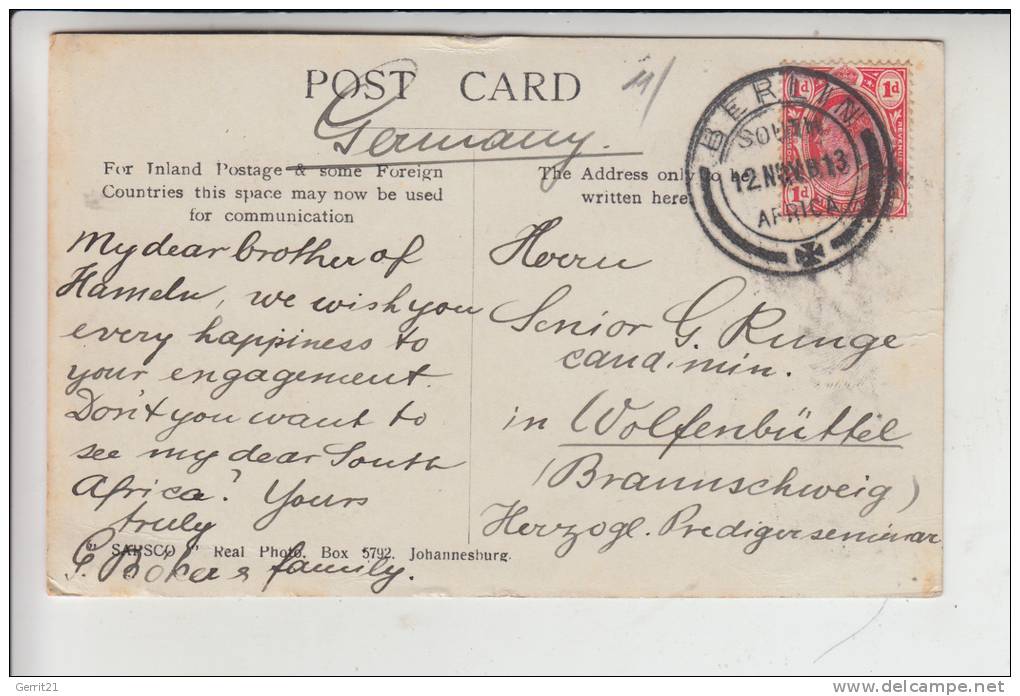 POST CARD
Germany.
For Inland Postage & some Foreign
Countries this space may now be used
for communication
The Address only to be
written here.
BERLIN
SOUTH
12 NOV 13
AFRICA
1d 1d
REVENUE
1d
My dear brother of
Hameln, we wish you
every happiness to
your engagement.
Don't you want to
see my dear South
Africa? Yours
truly
family.
"SAPSCO" Real Photo, Box 5792, Johannesburg.
Herrn
Senior G. Runge
cand. min.
in Wolfenbüttel
(Braunschweig)
Herzogl. Predigerseminar
Gerrit21
www.delcampe.net